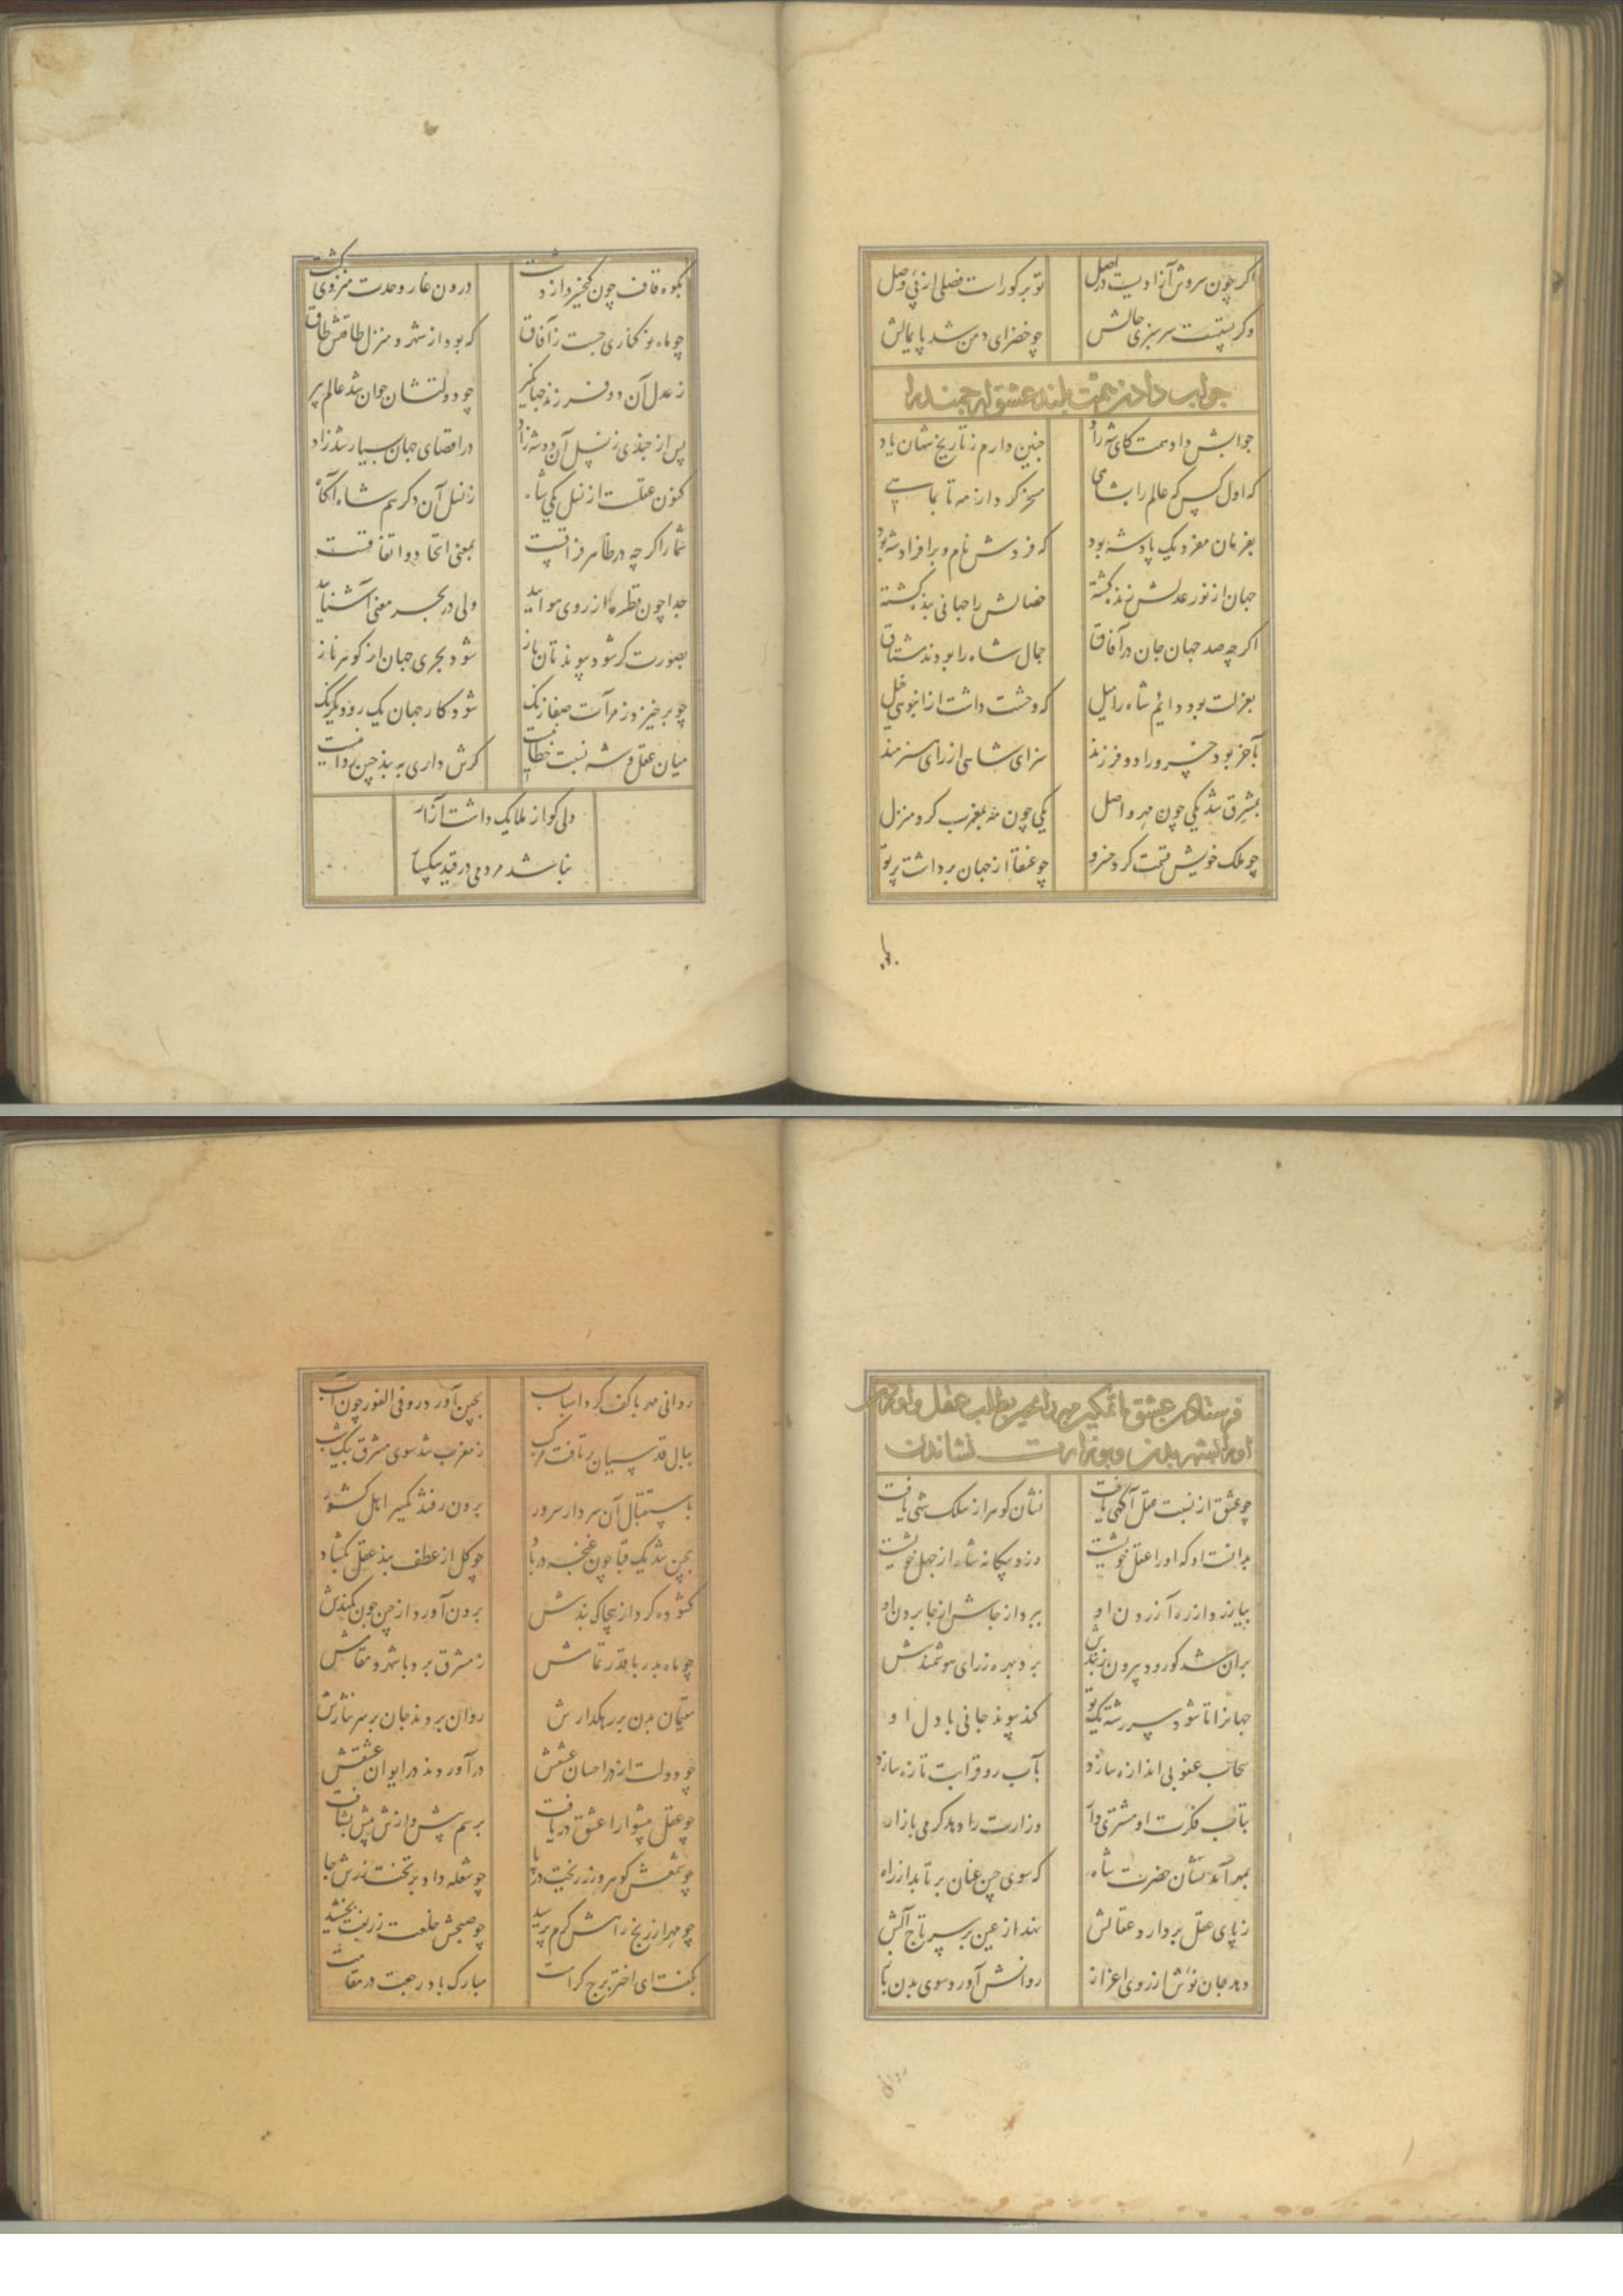 اگر چون سروش آزادیست در اصل
تو بر گو راست فضلی از پی وصل
وگر سر سبزی حالش
چو خضرای دمن شد پایمالش
جواب دادن همت بلند عشق ارجمند را
جوابش داد همت کای شه راد
چنین دارم ز تاریخ شهان یاد
که اول کس که عالم را بشاهی
مسخر کرد از مه تا بماهی
بفرمان مفرد یک پادشه بود
که فردش نام و بر افراد شه بود
جهان از نور عدلش زنده گشته
خصالش را جهانی بنده گشته
اگر چه صد جهان جان در آفاق
جمال شاه را بودند مشتاق
بعزلت بود دایم شاه را میل
که وحشت داشت از انبوهی خیل
بآخر بود خسرو را دو فرزند
سزای شاهی از رای هنرمند
بمشرق شد یکی چون مهر واصل
یکی چون مه بمغرب کرد منزل
چو ملک خویش قسمت کرد خسرو
چو عنقا از جهان برداشت پرتو
بکوه قاف چون کیخسرو
درون غار وحدت منزوی گشت
چو ماه نو کناری جست ز آفاق
که بود از شهر و منزل طاقتش طاق
ز عدل آن دو فرزند جهانگیر
چو دولتشان جوان شد عالم پیر
پس از چندی ز نسل آن دو شه زاد
در اقصای جهان بسیار شهزاد
کنون عقلست از نسل یکی شاه
ز نسل آن دگر هم شاه آگاه
شما را گر چه در ظاهر فراقست
بمعنی اتحاد و اتفاقست
جدا چون قطره از روی هوایید
ولی در بحر معنی آشنایید
بصورت گر شود پیوندتان باز
شود بحری جهان از گوهر ناز
چو برخیزد ز مرآت صفا زنگ
شود کار جهان یک رو و یکرنگ
میان عقل و شه نسبت خطا نیست
گرش داری به بند چین روا نیست
دلی کو از ملایک داشت آزار
نباشد مردمی در قید
فرستادن عشق مهر را بطلب عقل و
او را بشهر بدن و بوزارت نشاندن
چو عشق از نسبت عقل آگهی یافت
نشان گوهر از سلک شهی یافت
بدانست او که او را عقل خویشست
وزو بیگانه شاه از جهل خویشست
بیازرد از ره آزردن او
ببرد از جاش از جا بردن او
بران شد کورد بیرون ز بندش
برد بهره ز رای هوشمندش
جهانرا تا شود سر رشته یک تو
کند پیوند جانی با دل او
سحاب عفو بی اندازه سازد
بآب رو قرابت تازه سازد
بتاب فکرت او مشتری وار
وزارت را دهد گرمی بازار
بمهر آمد نشان حضرت شاه
که سوی چین عنان بر تابد از راه
ز پای عقل بردارد عقالش
نهد از عین بر سر تاج آلش
دهد جان نوش از روی اعزاز
روانش آورد سوی بدن باز
روانی مهر با کف کرد اسباب
بچین آورد رو فی الفور چون آب
ببال قدسیان بر تافت مرکب
ز مغرب شد سوی مشرق بیک شب
باستقبال آن سردار سرور
برون رفتند یکسر اهل کشور
بچین شد یک قبا چون غنچه در باد
چو گل از عطف بند عقل بگشاد
گشوده کرد از بندش
برون آورد از چین چون کمندش
چو ماه بدر با قدر تمامش
ز مشرق برد با شهر و مقامش
مقیمان بدن بر رهگذارش
روان بردند جان بر سر نثارش
چو دولت از در احسان عشقش
در آوردند در ایوان عشقش
چو عقل پیشوا را عشق دریافت
برسم پیشوازش پیش بشتافت
چو شمعش گوهر و زر ریخت در پا
چو شعله داد بر تخت زرش جا
چو مهر از رنج راهش گرم پرسید
چو صبحش خلعت زربفت بخشید
بگفت ای اختر برج کرامت
مبارک باد رجعت در مقامت